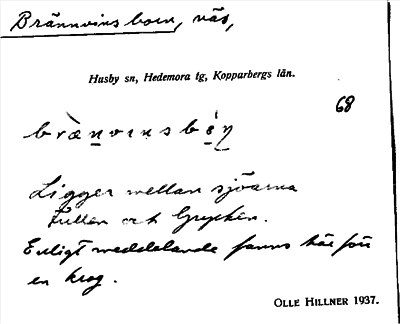 Brännvinsboen, näs,
Husby sn, Hedemora tg, Kopparbergs län.
68
Ligger mellan sjöarna
Fullen och Grycken.
Enligt meddelande fanns här förr
en krog.
OLLE HILLNER 1937.